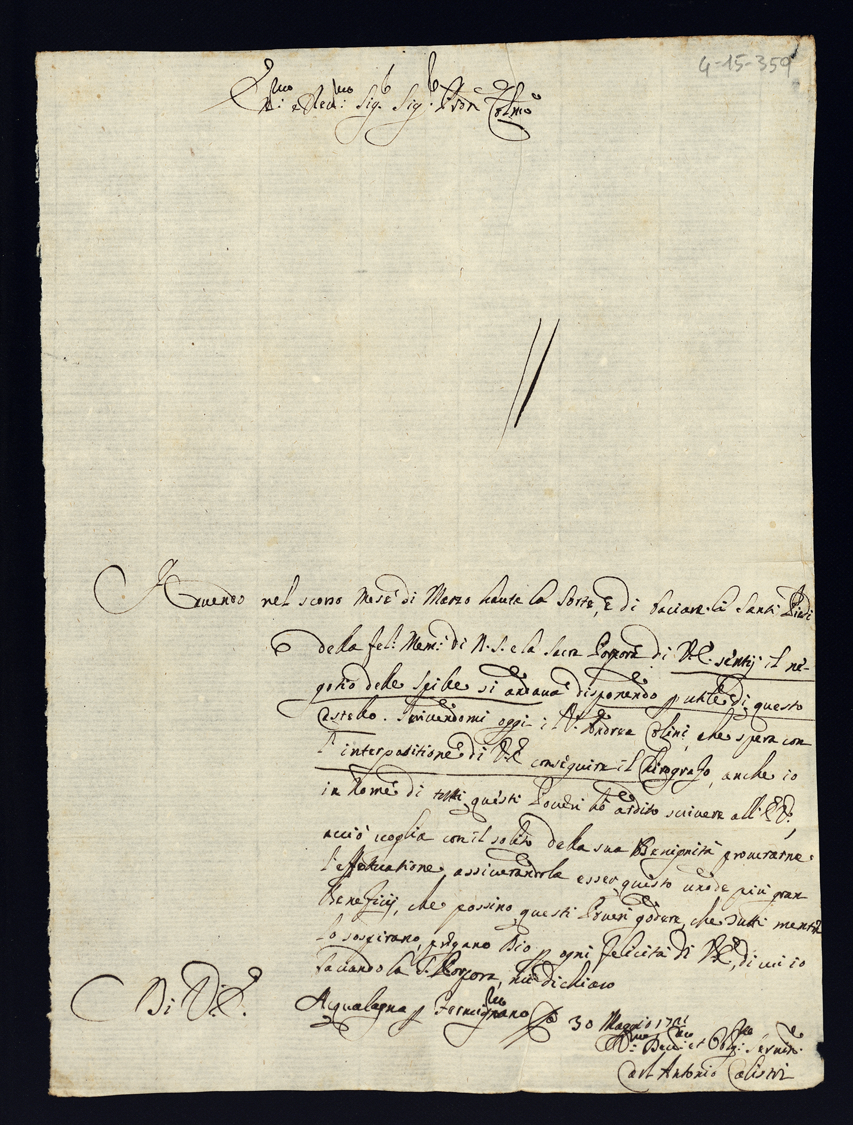 4-15-359
Em.mo e Rev.mo Sig.r Sig.r P.ron Col.mo
Avendo nel scorso mese di Marzo hauta la sorte, e di baciare li Santi Piedi
della fel: Mem: di N.S. e la sacra Porpora di V.E. sentij il ne-
gotio delle Spelte si andava disponendo p utile di questo
Castello. Scrivendomi oggi il S.r Andrea Colini, che spera con
l'interpositione di V.E. conseguire il Chirografo, anche io
in nome di tutti questi Poveri hò ardito scrivere all' E.V.,
acciò voglia con il solito della sua Benignità procurarne
l'effettuatione, assicurandola esser questo uno de più gran
Benefizij, che possino questi Poveri godere, che tutti mentre
lo sospirano, pregano Dio p ogni felicità di V.E., di cui io
baciando la S. Porpora, mi dichiaro
Di V.E.
Acqualagna p Fermignano 30 Maggio 1721
Dev.mo et Obl.mo Servit.
Antonio Calistri